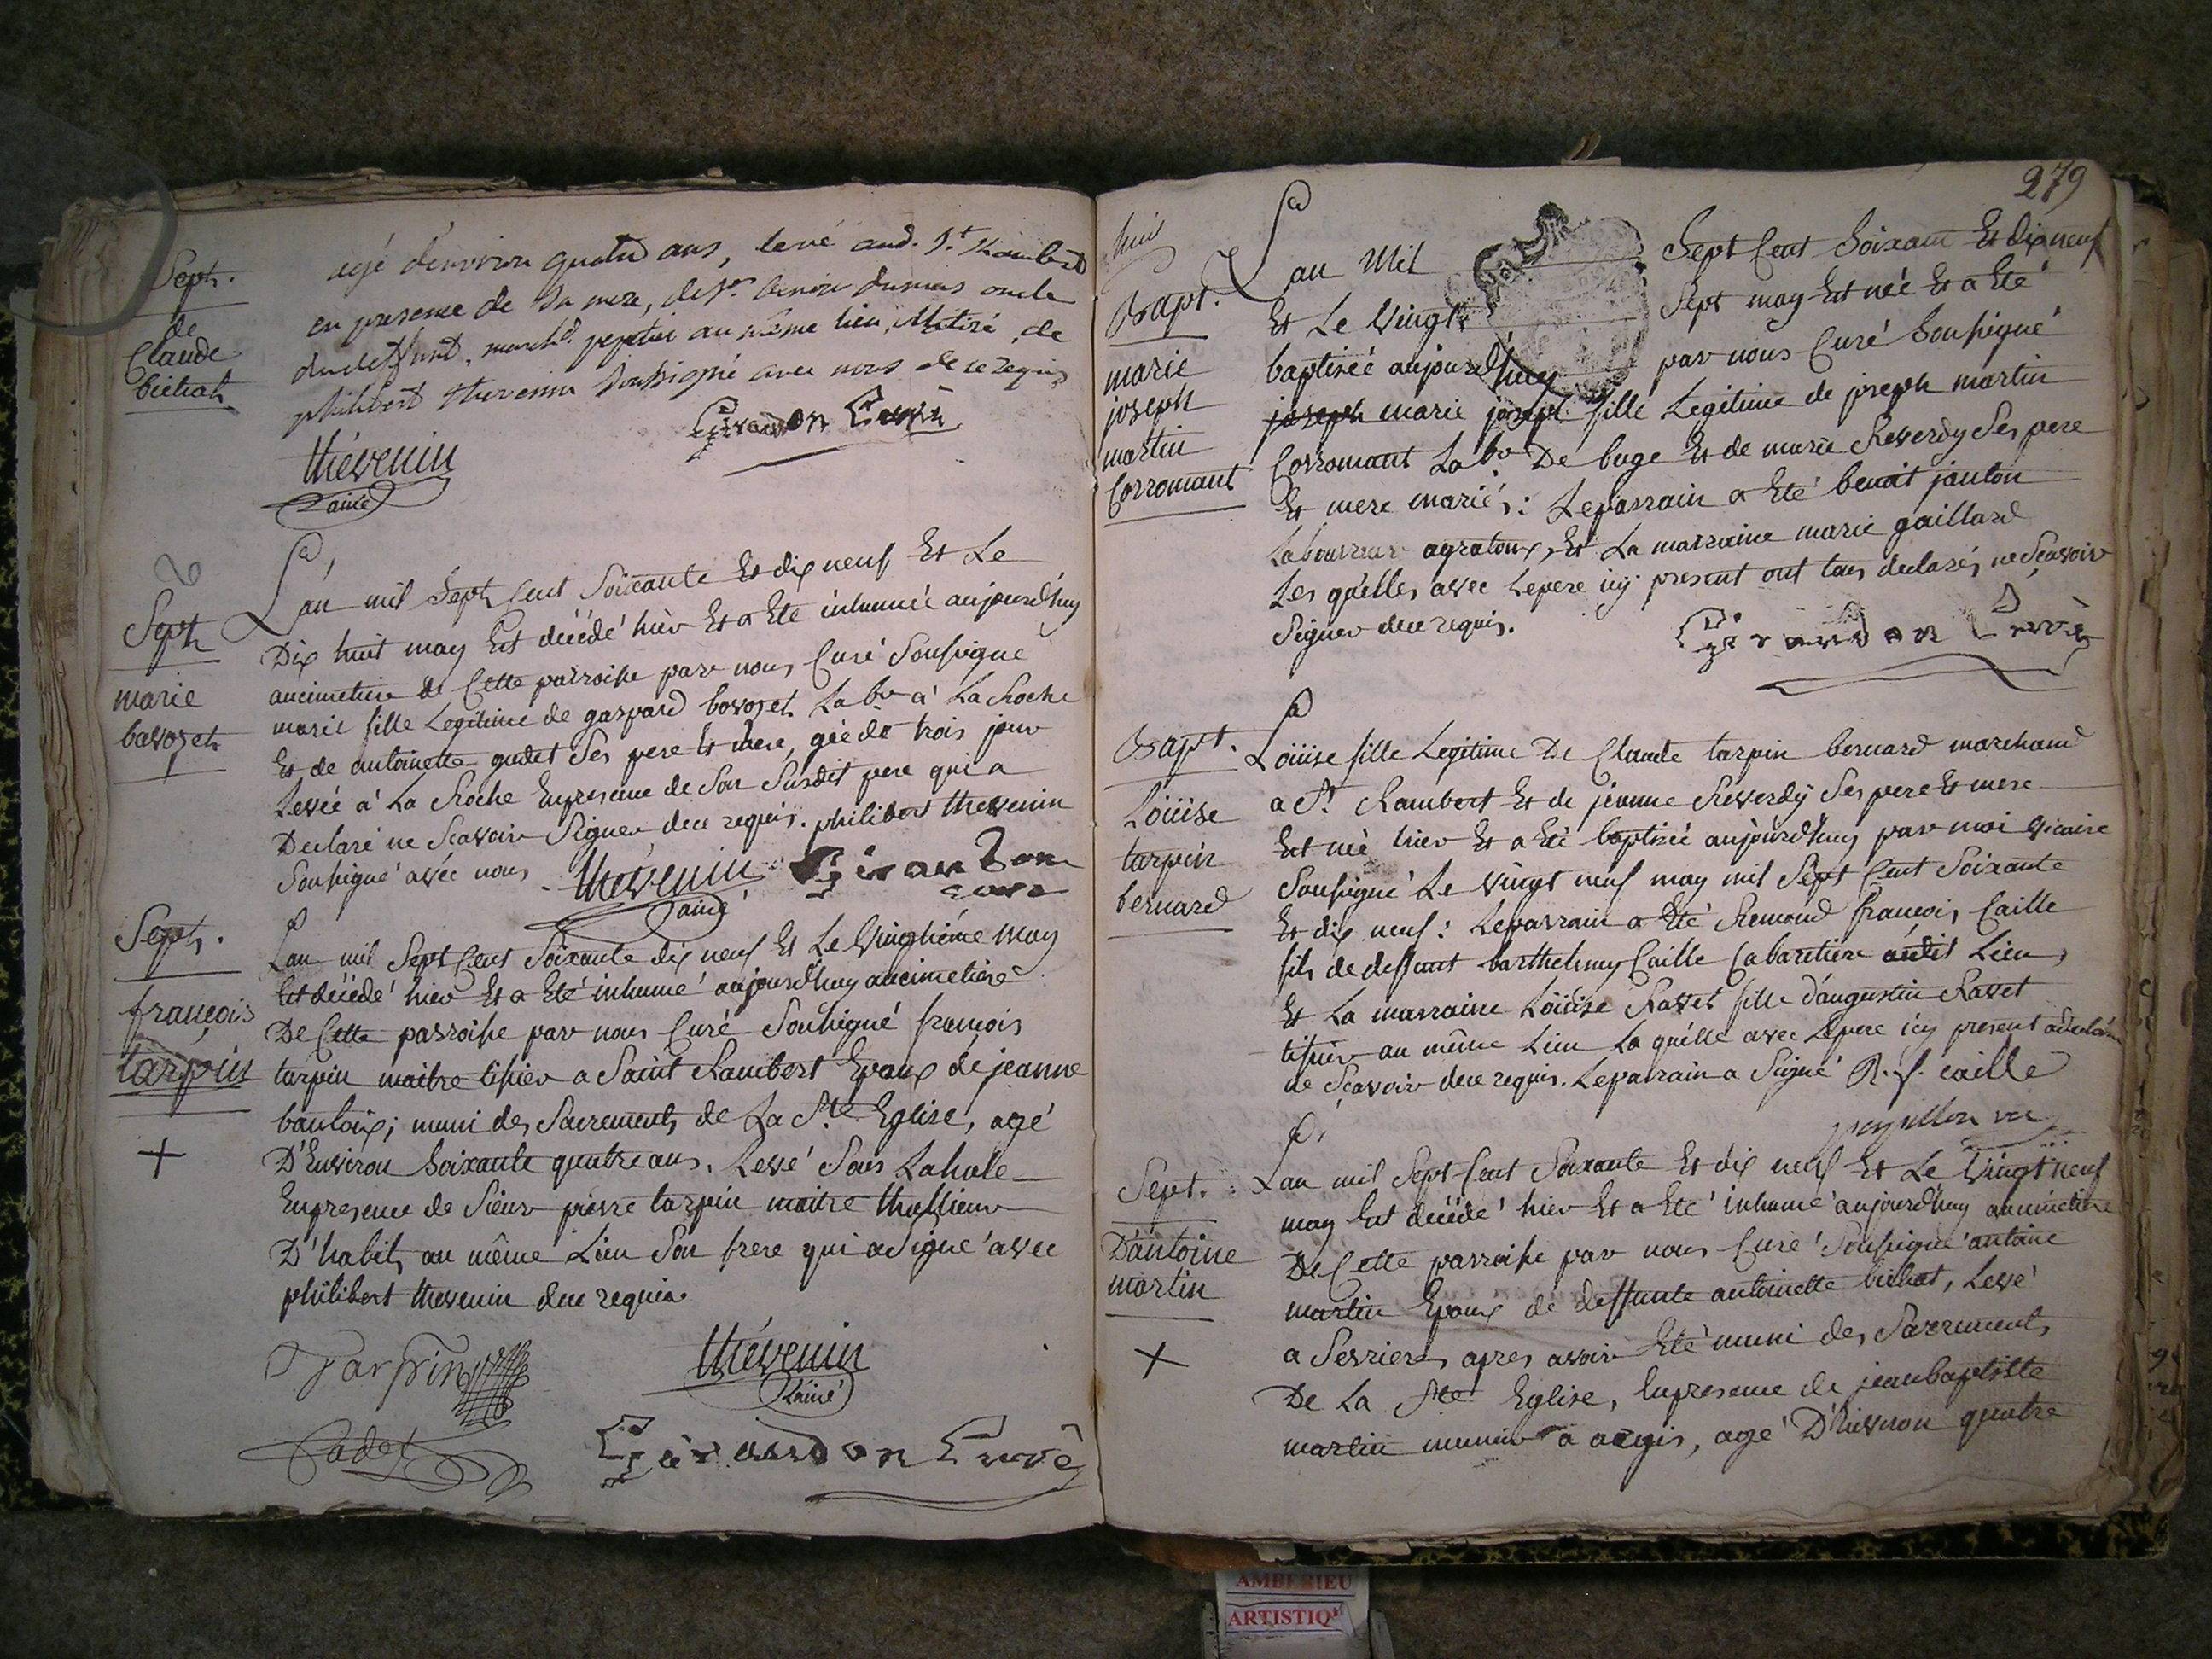 Sept.
de
Claude
bietrat
agé d'environ quatre ans, levé aud. St. Rambert
en presence de sa mere, de Sr. benoit dumas oncle
du deffunt, marchd. papetier au même lieu, illitiré, de
philibert thevenin soussigné avec nous de ce requis
Girandon Curé
thévenin
lainé
Sept
marie
bavozet
L'an mil sept Cent Soixante et dix neuf Et Le
Dix huit may Est décédé hier Et a Eté inhumée aujourd'huy
aucimetiere de Cette parroisse par nous Curé Soussigné
marie fille Legitime de gaspard bovozet Labr. a La Roche
Et de antoinette gudet Ses pere Et mere, gée de trois jour
Levée à La Roche En presence de Son Susdit pere qui a
Declaré ne Scavoir Signer de ce requis. philibert thevenin
Soussigné avéc nous
thévenin
lainé
Girandon
curé
Sept.
françois
tarpin
Lan mil Sept Cent Soixante dix neuf Et Le Vingtiéme may
Est décédé hier Et a Eté inhumé aujourd'huy aucimetiere
De Cette parroisse par nous Curé Soussigné francois
tarpin maitre tissier a Saint Rambert Epoux de jeanne
bauloix; muni des Sacrements de La Ste Eglise, agé
D'Environ Soixante quatre ans. Levé Sous Lahale
En presence de Sieur pierre tarpin maitre thallieur
D'habits au même Lieu Son frere qui a Signé avec
philibert thevenin de ce requis
Tarpin
Cadet
thévenin
Lainé
Girandon Curé
279
Bapt.
marie
joseph
martin
Corromant
Lan Mil Sept Cent Soixante Et dix neuf
Et Le Vingt Sept may Est née Et a Eté
baptisée aujourdhuy par nous Curé Soussigné
joseph marie joseph fille Legitime de joseph martin
Corromant Labr. De buge Et de marie Reverdy Ses pere
Et mere mariés: Leparrain a Eté benoit janton
Laboureur agratoux, Et La marraine marie gaillard
Les quelles avec Lepere icy present ont tous declarés ne Scavoir
Signer de ce requis.
Girandon Curé
Bapt.
Loüise
tarpin
bernard
Loüise fille Legitime De Claude tarpin bernard marchand
a St Rambert Et de jeanne Reverdÿ Ses pere Et mere
Est née hier Et a Eté baptisée aujourd'huy par moi vicaire
Soussigné Le Vingt neuf may mil Sept Cent Soixante
Et dix neuf: Leparrain a Eté Remond françois Caille
fils de deffunt barthelemy Caille Cabaretiere audit Lieu,
Et La marraine Loüise Ravet fille d'augustin Ravet
tissier au même Lieu La quélle avec Lepere icy present a declaré
ne Scavoir de ce requis. Leparrain a Signé R. f. caille
papillon vic
Sept.
D'antoine
martin
Lan mil Sept Cent Soixante Et dix neuf Et Le Vingt neuf
may Est décédé hier Et a Eté inhumé aujourd'huy aucimetiere
De Cette parroisse par nous Curé Soussigné antoine
martin Epoux de deffunte antoinette bietrat, Levé
a Serrieres apres avoir Eté muni des Sacrements
De La Ste Eglise, En presence de jean baptiste
martin munier a argis, agé D'Environ quatre
AMBERIEU
ARTISTIQ